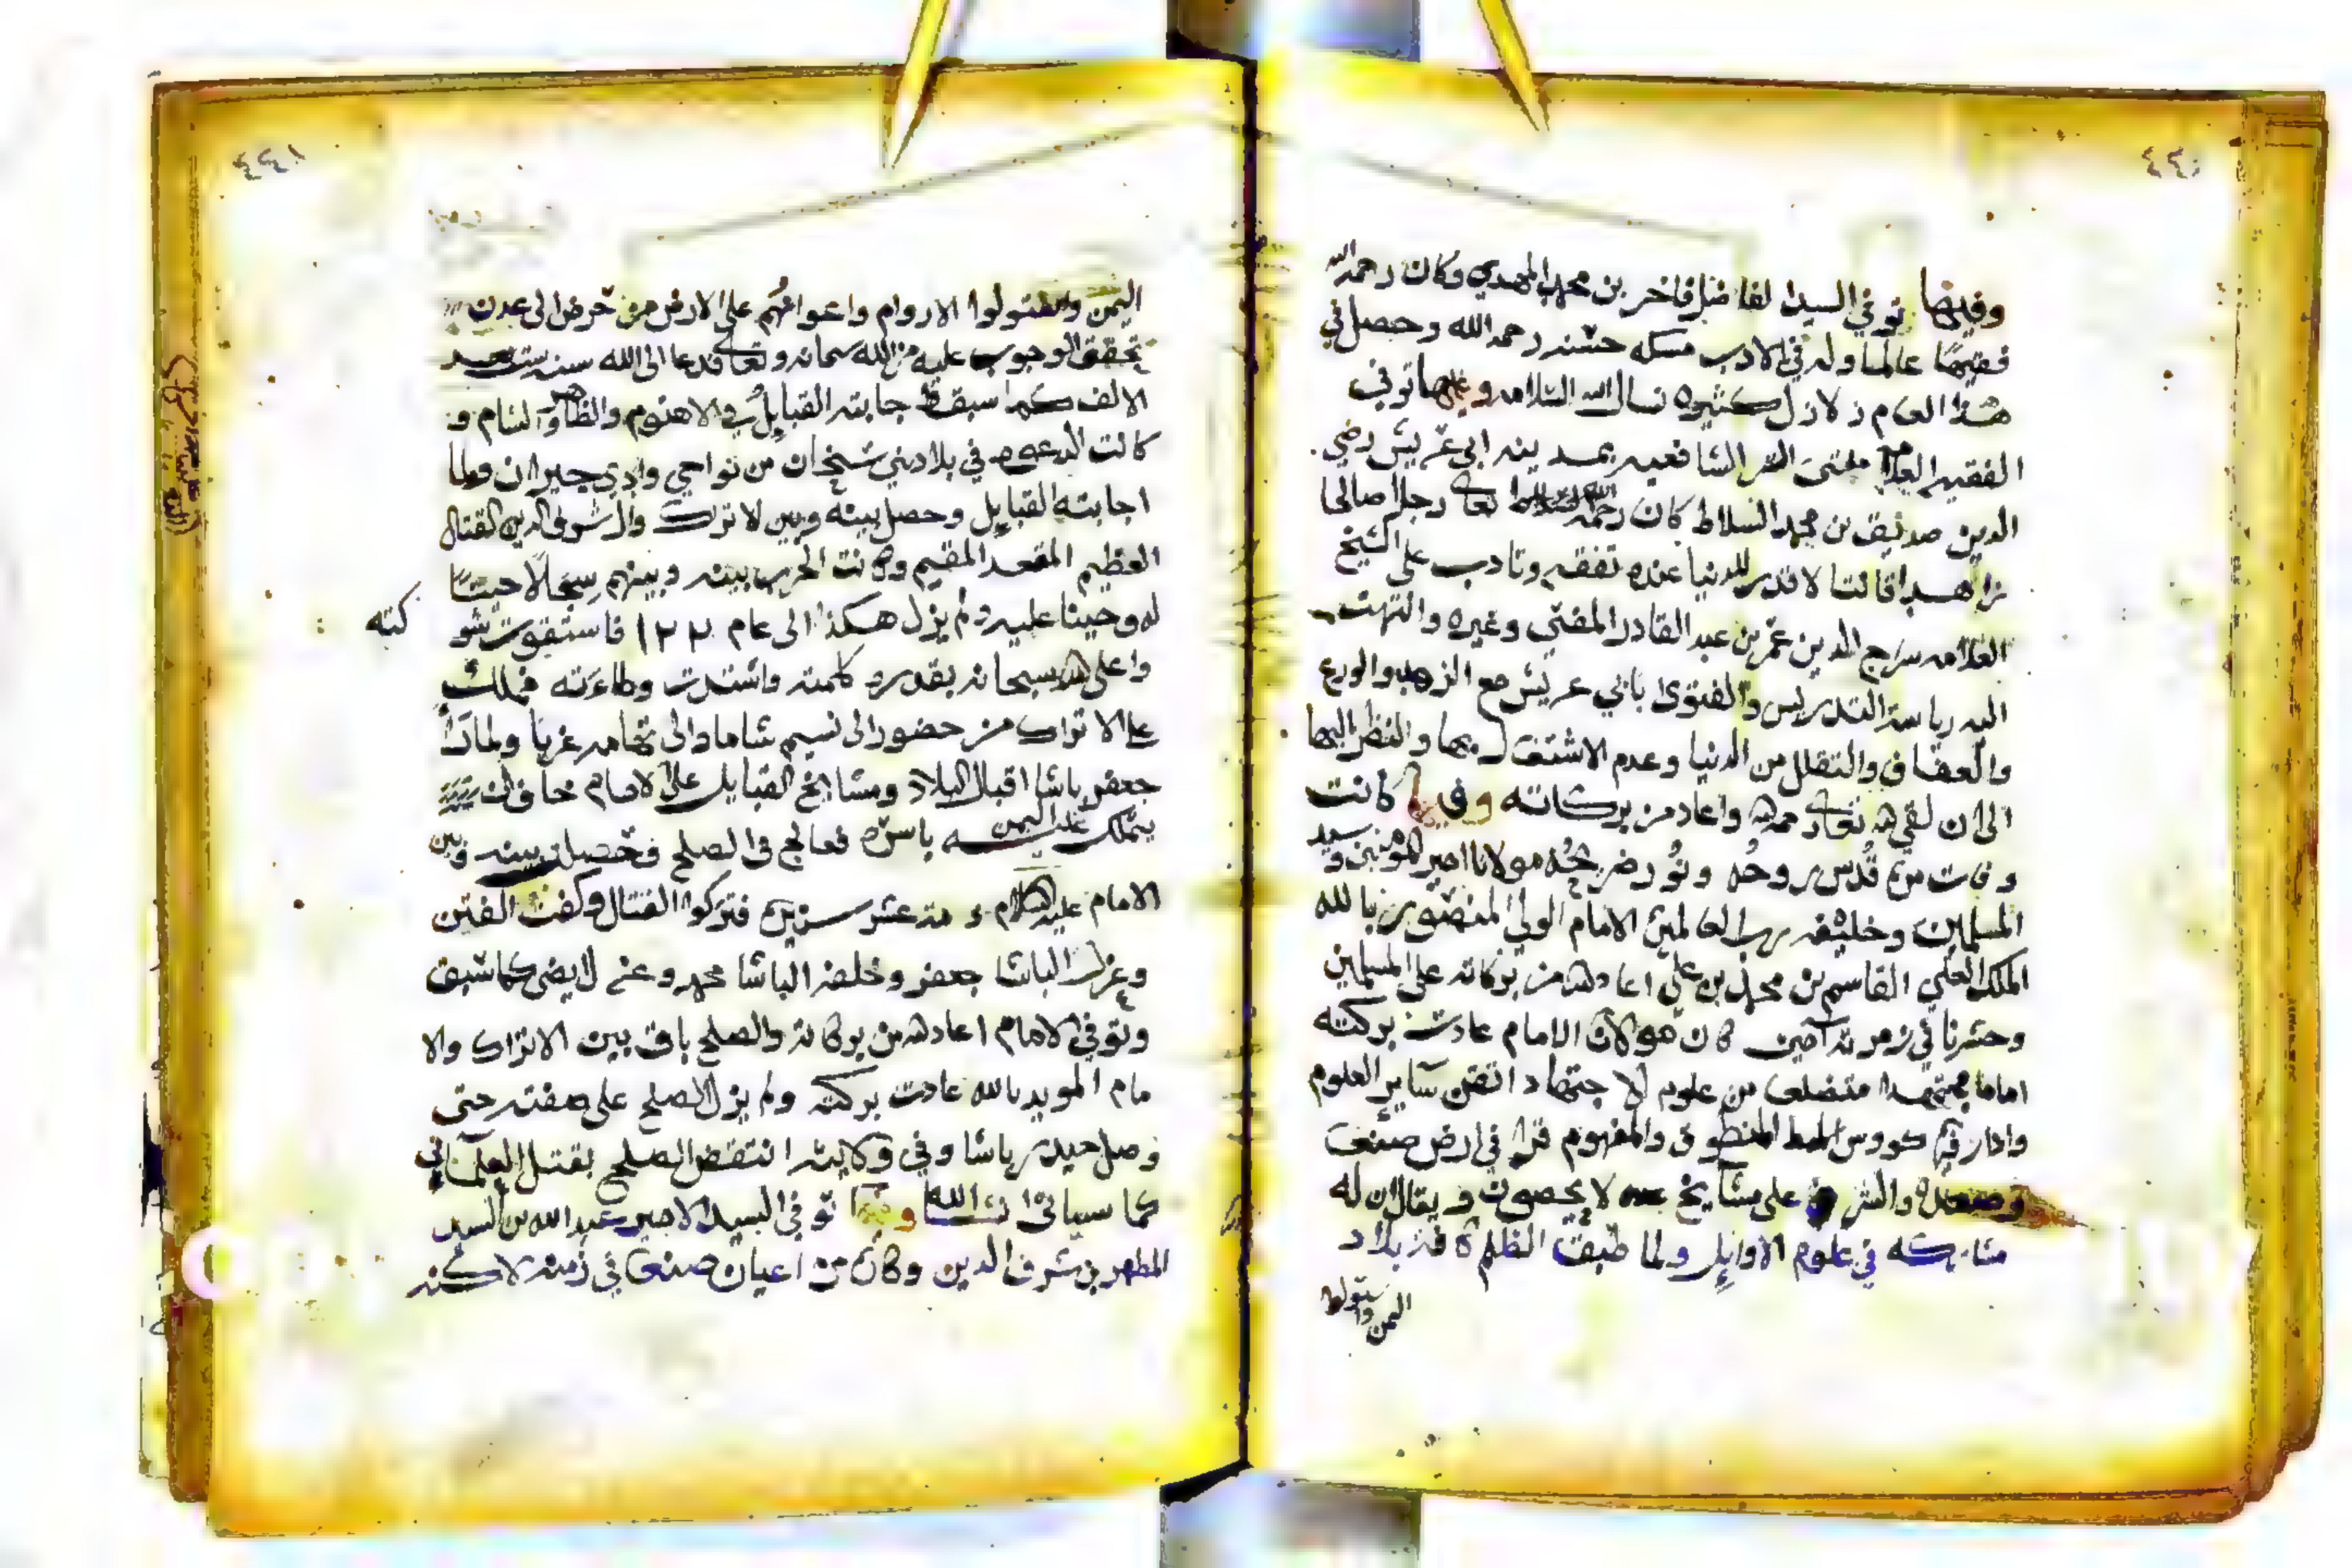 ٤٤٠
وفيها توفي السيد الفاضل فاخر بن محمد المهدي وكان رحمه الله
فقيها عالما وله في الادب مسكه حسنه رحمه الله وحصل في
هذا العام زلازل كثيره نسال الله السلامه وفيها توفي
الفقيه العلامه مفتي الشافعيه بمدينه ابي عريش رضي
الدين صديق بن محمد السلاط كان رحمه الله تعالى رجلا صالحا
زاهدا قانتا لا قدر للدنيا عنده تفقه وتادب على الشيخ
العلامه سراج الدين عمر بن عبد القادر المفتي وغيره وانتهت
اليه رياسة التدريس والفتوى بابي عريش مع الزهد والورع
والعفاف والتقلل من الدنيا وعدم الاشتغال بها والنظر اليها
الى ان لقي الله تعالى رحمه الله واعاد من بركاته وفيها كانت
وفات من قُدس روحه ونُور ضريحُه مولانا امير المومنين وسيد
المسلمين وخليفه رب العالمين الامام الولي المنصور بالله
الملك العلي القاسم بن محمد بن علي اعاد الله من بركاته على المسلمين
وحشرنا في زمرته آمين كان مولانا الامام عادت بركته
اماما مجتهدا متضلعا من علوم الاجتهاد اتقن ساير العلوم
وادار فيه كووس المنطوق والمفهوم قرا في ارض صنعا
وصعده والشرف على مشايخ لا يحصون ويقال ان له
مشاركه في علوم الاوايل ولما طبقت الظلم كافة بلاد
اليمن واستولوا
٤٤١
اليمن واستولوا الاروام واعوانهم على الارض من حرض الى عدن
تحقق الوجوب عليه من الله سبحانه وتعالى فدعا الى الله سنه ست بعد
الالف كما سبق فاجابته القبايل في الاهنوم والظاهر والشام و
كانت الدعوه في بلاد بني شنخان من نواحي وادي جيزان ولما
اجابته القبايل وحصل بينه وبين الاتراك وال شرف الدين القتال
العظيم المقعد المقيم وكانت الحرب بينه وبينهم سجالا حينا
له وحينا عليه ولم يزل هكذا الى عام ١٠٢٢ فاستقوت شو
كته
واعلى الله سبحانه بقدره كلمته واشتدت وطاءته فملك
على الاتراك من حضور الى نسيم شاما والى تهامه غربا ولما راى
جعفر باشا اقبال البلاد ومشايخ القبايل على الامام خاف ان
يتملك عليه اليمن باسره فعالج في الصلح فحصل بينه وبين
الامام عليه السلام مدة عشر سنين فتركوا القتال وكفت الفتن
وعزل الباشا جعفر وخلفه الباشا محمد وعزل ايضي كما سبق
وتوفي الامام اعاد الله من بركاته والصلح باق بين الاتراك والا
مام المويد بالله عادت بركته ولم يزل الصلح على صفته حتى
وصل حيدر باشا وفي ولايته انتقض الصلح بقتل العلماني
كما سياتي ان شا الله وفيها توفي السيد الامير عبد الله بن السيد
المطهر بن شرف الدين وكان من اعيان صنعا في زمنه لاكنه